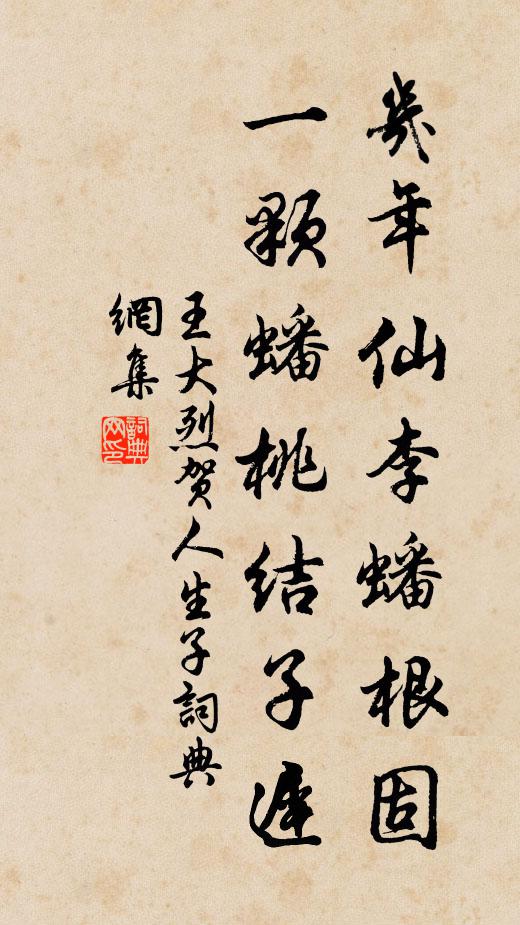 幾年仙李蟠根固
一顆蟠桃結子遲
王大烈賀人生子詞典
網集
詞典網印